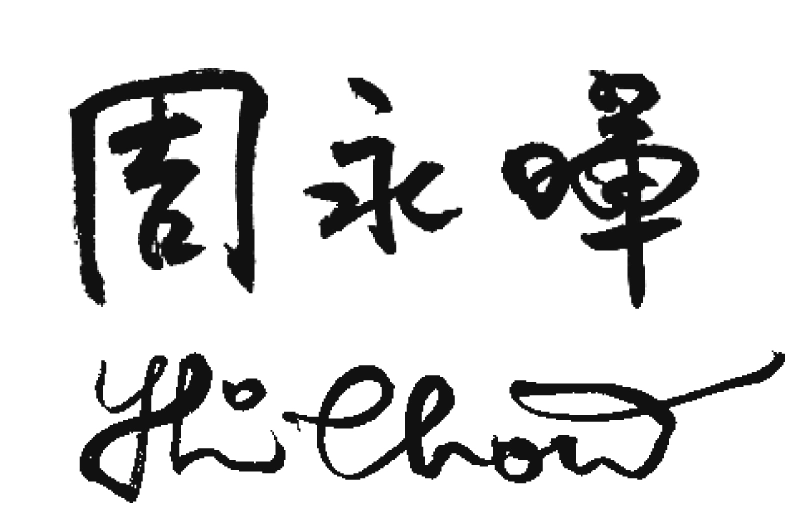 周永暉
Yhi Chow